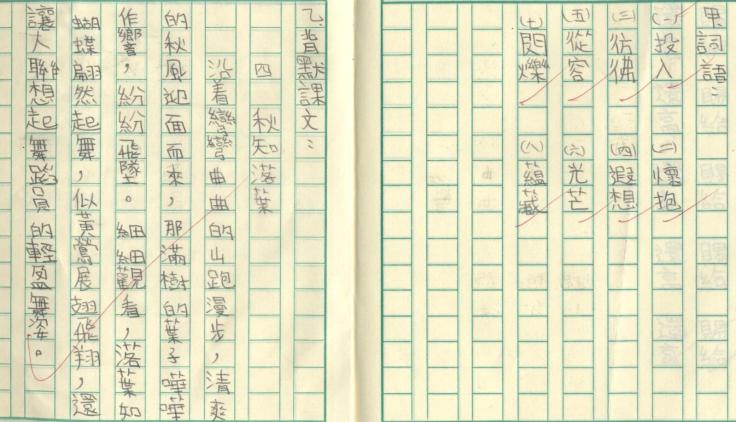 甲.詞語：
(一)投入 (二)懷抱
(三)彷彿 (四)遐想
(五)從容 (六)光芒
(七)閃爍 (八)蘊藏
乙.背默課文：
四 秋知落葉
沿着彎彎曲曲的山跑漫步，清爽
的秋風迎面而來，那滿樹的葉子嘩嘩
作響，紛紛飛墜。細細觀看，落葉如
蝴蝶翩然起舞，似黃鶯展翅飛翔，還
讓人聯想起舞蹈員的輕盈舞姿。